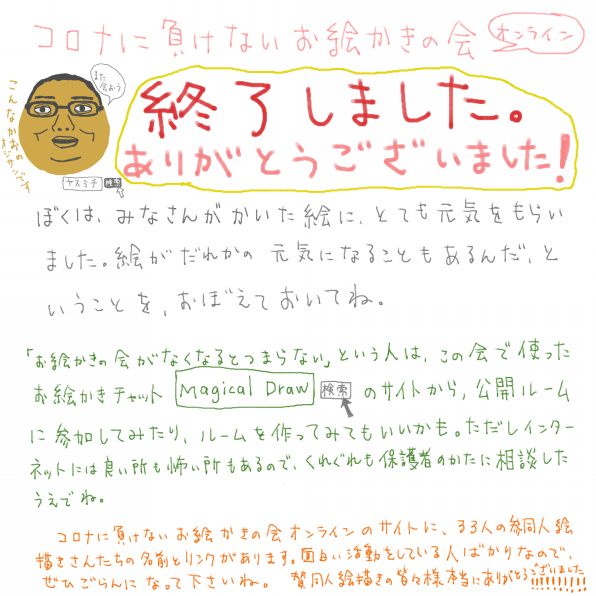 コロナに負けないお絵かきの会 オンライン
また会おう
こんなかおのオジサンです
ヤスミチ 検索
終了しました。
ありがとうございました!
ぼくは、みなさんがかいた絵に、とても元気をもらい
ました。絵がだれかの 元気になることもあるんだ、と
いうことを、おぼえておいてね。
「お絵かきの会がなくなるとつまらない」という人は、この会で使った
お絵かきチャット Magical Draw 検索 のサイトから、公開ルーム
に参加してみたり、ルームを作ってみてもいいかも。ただしインター
ネットには良い所も怖い所もあるので、くれぐれも保護者のかたに相談した
うえでね。
コロナに負けないお絵かきの会オンラインのサイトに、33人の参同人絵
描きさんたちの名前とリンクがあります。面白い活動をしている人ばかりなので、
ぜひごらんになって下さいね。 賛同人絵描きの皆々様本当にありがとうございました!!!!!!!!